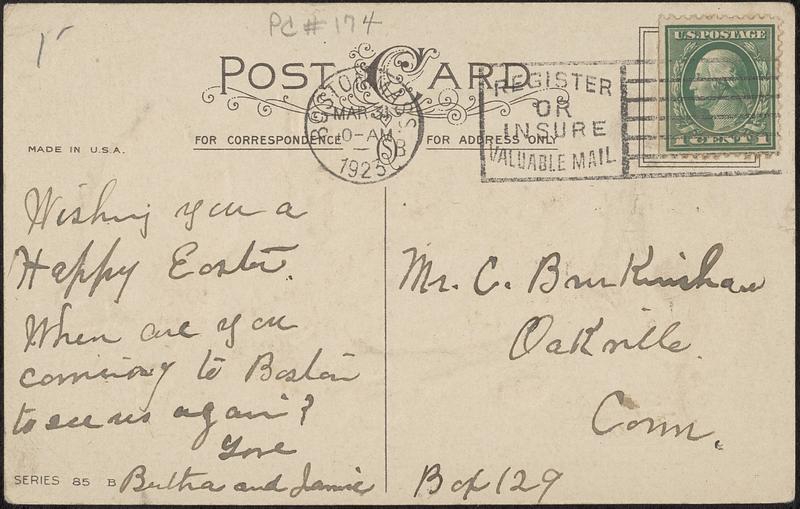 PC# 174
POST CARD
BOSTON MASS
MAR 31
10-AM
1923
B
REGISTER
OR
INSURE
VALUABLE MAIL
U.S. POSTAGE
1 CENT 1
FOR CORRESPONDENCE
FOR ADDRESS ONLY
MADE IN U.S.A.
Wishing you a
Happy Easter.
When are you
coming to Boston
to see us again?
Love
Bertha and Jamie
SERIES 85 B
Mr. C. Brukinshaw
Oakville.
Conn.
Box 129